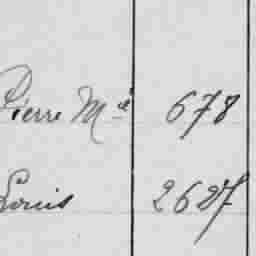 Pierre Mᵉˡ 678
Louis 2627